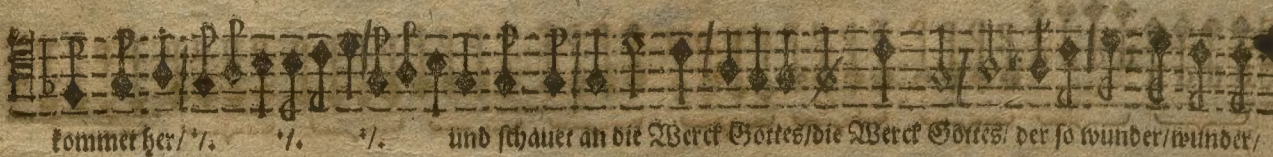 kommet her/ ٪. ٪. ٪. und schauet an die Werck Gottes/die Werck Gottes/ der so wunder/wunder/